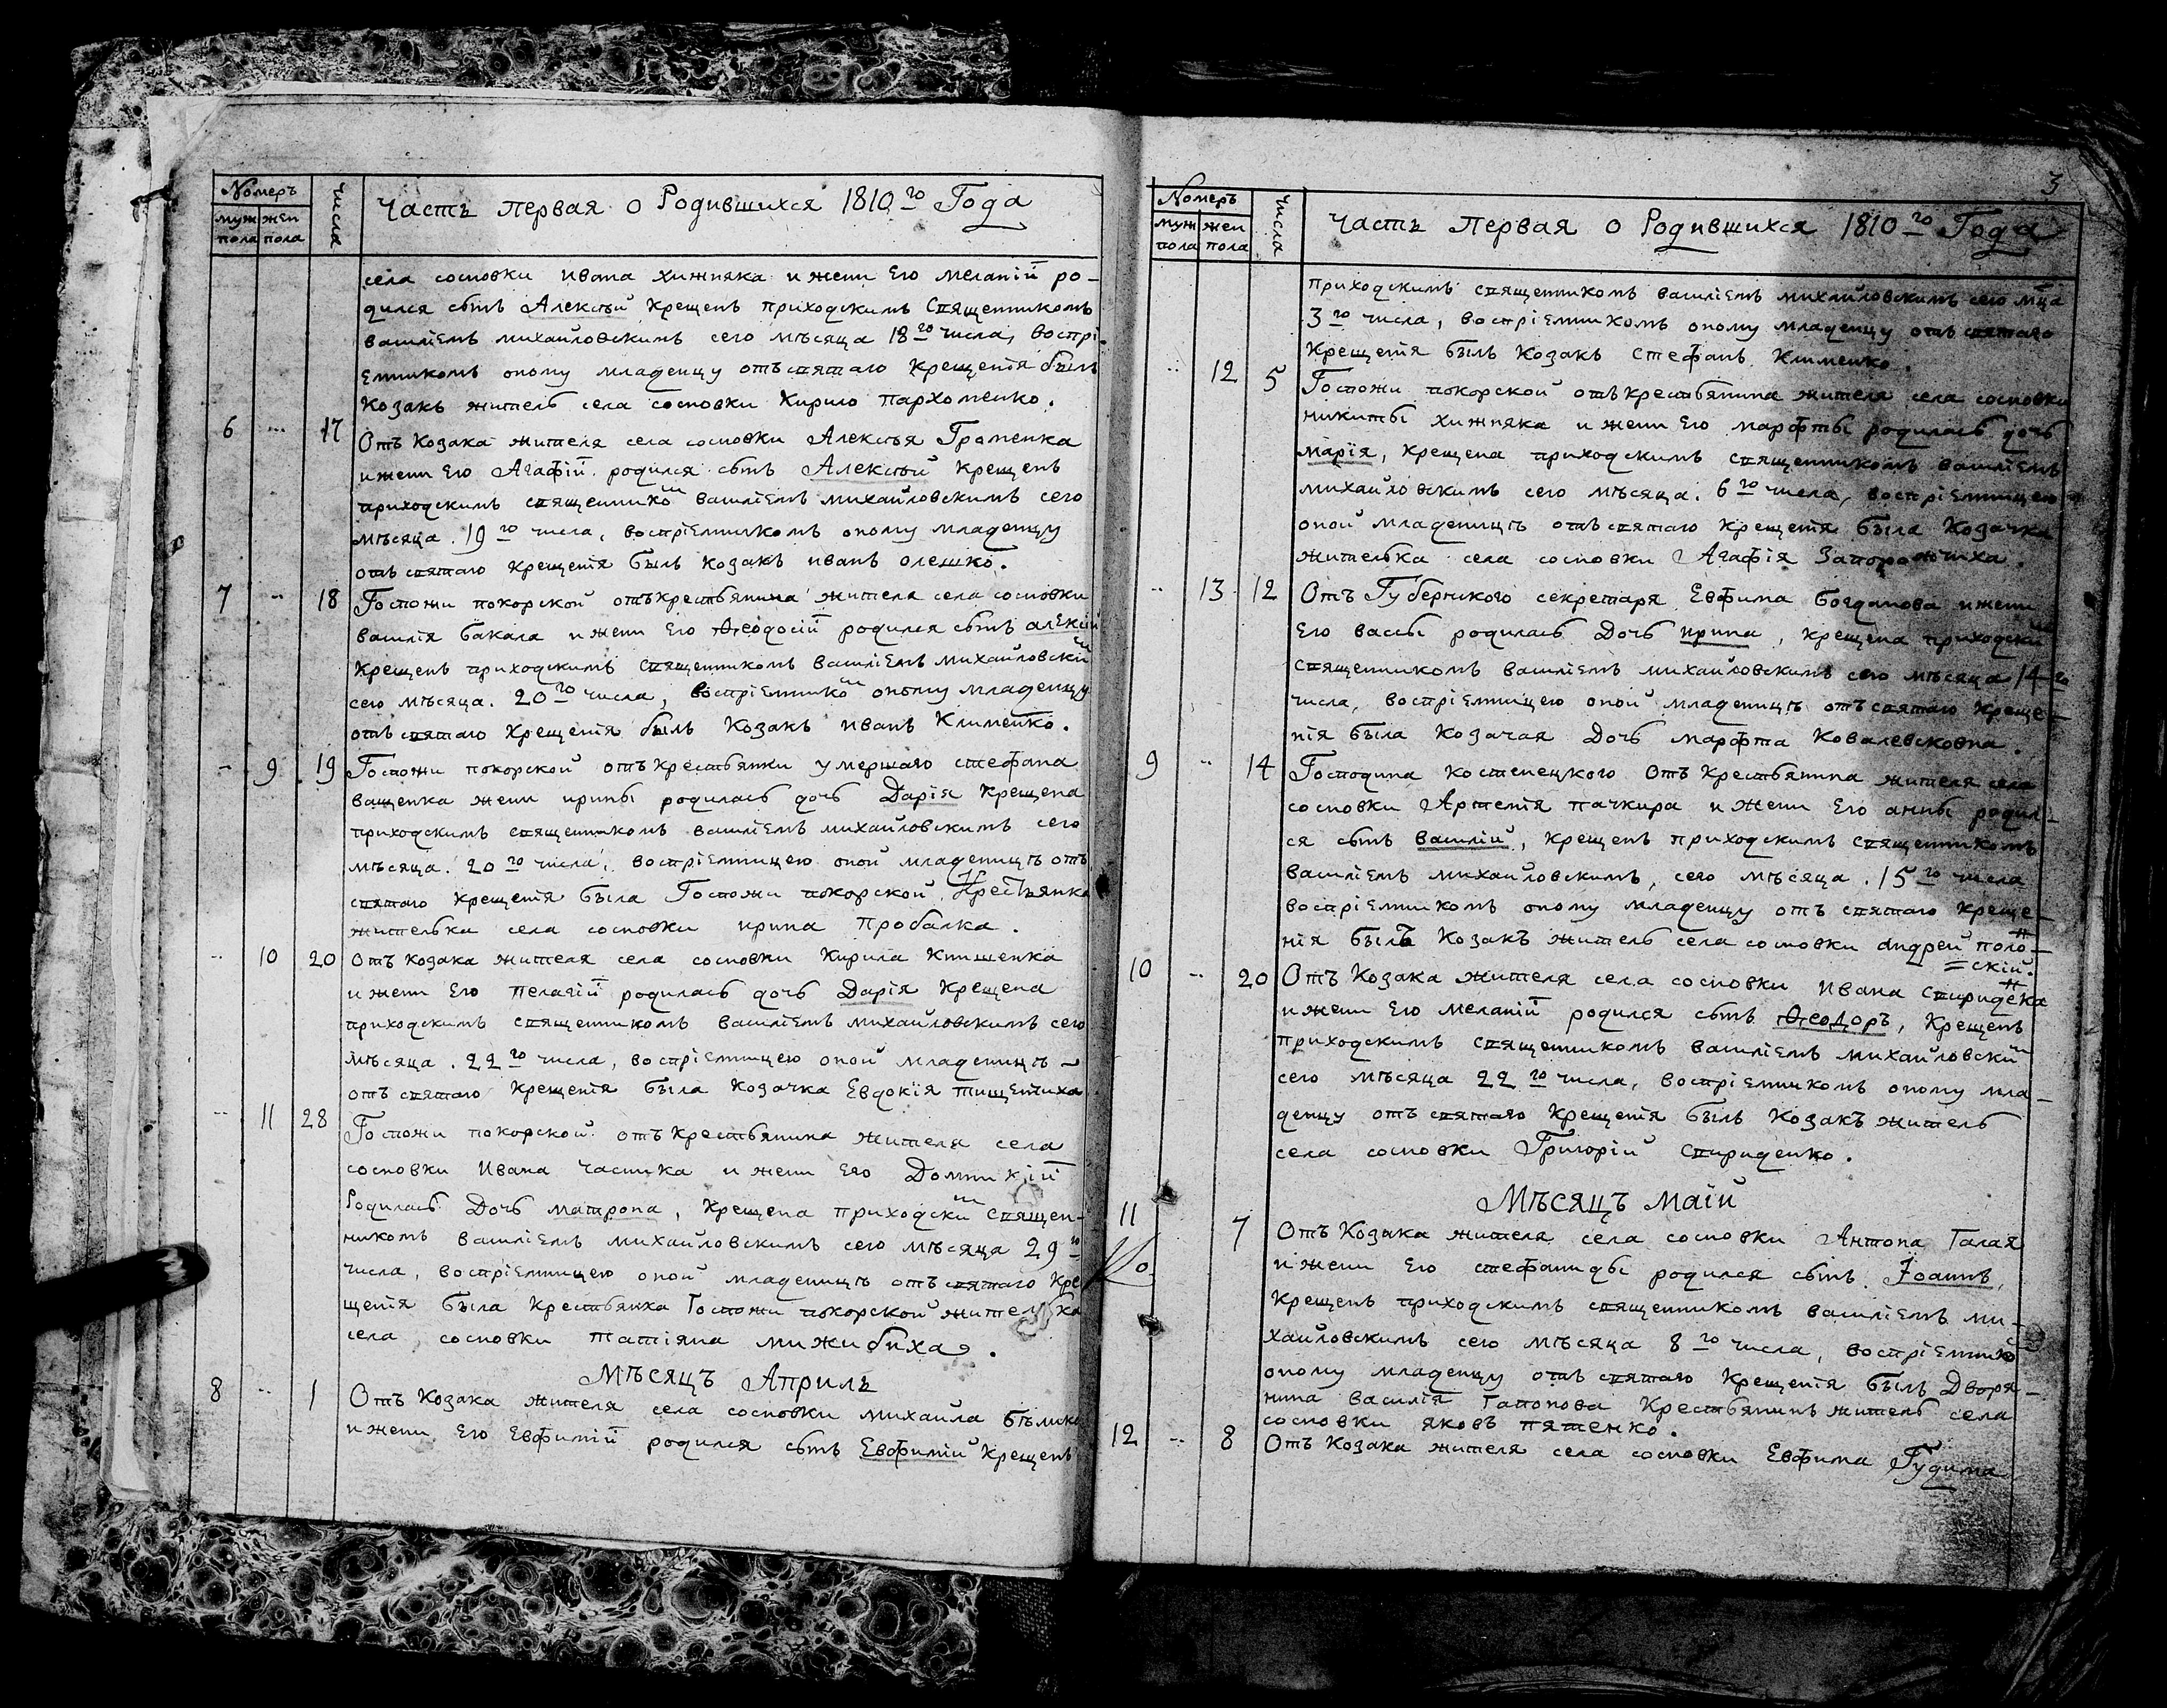 Номеръ
муж жен
пола пола
числа
Часть первая о Родившихся 1810го Года
села сосновки ивана хижняка и жени Его меланіи ро-
дился сынъ Алексѣй Крещенъ приходскимъ Священникомъ
василіемъ михайловскимъ сего мѣсяца 18го числа, воспрі-
Емникомъ оному младенцу отъ святаго Крещенія былъ
Козакъ житель села сосновки Кирило пархоменко.
6 17 Отъ Козака жителя села сосновки Алексѣя Громенка
и жени Его Агафіи родился сынъ Алексѣй Крещенъ
приходскимъ священнико василіемъ михайловскимъ сего
мѣсяца. 19го числа, воспріемникомъ оному младенцу
отъ святаго Крещенія былъ Козакъ иванъ олешко.
7 18 Госпожи покорской отъ крестьянина жителя села сосновки
василія бакала и жени Его Ѳеодосіи родился сынъ алексій
Крещенъ приходскимъ священникомъ василіемъ михайловски
сего мѣсяца. 20го числа, воспріемнико оному младенцу
отъ святаго Крещенія былъ Козакъ иванъ Клименко.
9 19 Госпожи покорской отъ Крестьянки умершаго стефана
ващенка жени ирины родилась дочь Дарія Крещена
приходскимъ священникомъ василіемъ михайловскимъ сего
мѣсяца. 20го числа, воспріемницею оной младеницѣ отъ
святаго Крещенія была Госпожи покорской Крестьянка
жителька села сосновки ирина пробалка.
10 20 Отъ Козака жителя села сосновки Кирила Книшенка
и жени Его пелагіи родилась дочь Дарія Крещена
приходскимъ священникомъ василіемъ михайловскимъ сего
мѣсяца. 22го числа, воспріемницею оной младеницѣ
отъ святаго Крещенія была Козачка Евдокія тищениха
11 28 Госпожи покорской отъ Крестьянина жителя села
сосновки Ивана частика и жени Его Домникіи
Родилась Дочь матрона, Крещена приходски священ-
никомъ василіемъ михайловскимъ сего мѣсяца 29го
числа, воспріемницею оной младеницѣ отъ святаго Кре
щенія была Крестьянка Госпожи покорской жителька
села сосновки татіяна мижибиха.
Мѣсяцъ Априль
8 1 Отъ Козака жителя села сосновки михаила
и жени Его Евфиміи родился сынъ Евфимій Крещенъ
3
Номеръ
муж жен
пола пола
числа
Часть Первая о Родившихся 1810го Года
приходскимъ священникомъ василіемъ михайловскимъ сего мца
3го числа, воспріемникомъ оному младенцу отъ святаго
Крещенія былъ Козакъ Стефанъ Клименко.
12 5 Госпожи покорской отъ Крестьянина жителя села сосновки
никиты хижняка и жени Его марфты родилась дочь
марія, Крещена приходскимъ священникомъ василіемъ
михайловскимъ сего мѣсяца. 6го числа, воспріемницею
оной младеницѣ отъ святаго Крещенія была Козачка
жителька села сосновки Агафія Запорожчиха.
13 12 Отъ Губернского секретаря Евфима Богданова и жени
Его вассы родилась Дочь ирина, Крещена приходски
священникомъ василіемъ михайловскимъ сего мѣсяца 14го
числа, воспріемницею оной младеницѣ отъ святаго Креще-
нія была Козачая Дочь марфта Ковалевсковна.
9 14 Господина Костенецкого Отъ Крестьянина жителя села
сосновки Артемія пачкира и Жени Его анны родил-
ся сынъ василій, Крещенъ приходскимъ священникомъ
василіемъ михайловскимъ, сего мѣсяца. 15го числа
воспріемникомъ оному младенцу отъ святаго Креще-
нія былъ Козакъ житель села сосновки андрей поло-
=скій.
10 20 Отъ Козака жителя села сосновки Ивана Спиридека
и жени Его меланіи родился сынъ Ѳеодоръ, Крещенъ
приходскимъ священникомъ василіемъ михайловски
сего мѣсяца 22го числа, воспріемникомъ оному мла-
денцу отъ святаго Крещенія былъ Козакъ житель
села сосновки Григорій Спириденко.
Мѣсяцъ маій
11 7 Отъ Козака жителя села сосновки Антона Галая
и жени Его стефаниды родился сынъ Іоаннъ,
Крещенъ приходскимъ священникомъ василіемъ ми-
хайловскимъ сего мѣсяца 8го числа, воспріемнико
оному младенцу отъ святаго Крещенія былъ Дворя-
нина василія Гапонова Крестьянинъ житель села
сосновки яковъ пятенко.
12 8 Отъ Козака жителя села сосновки Евфима Гудима